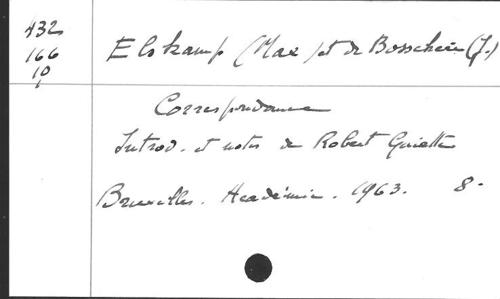 432
166
10
Elskamp (Max) et de Bosschère (J.)
Correspondance
Introd. et notes de Robert Guiette
Bruxelles. Académie. 1963. 8°